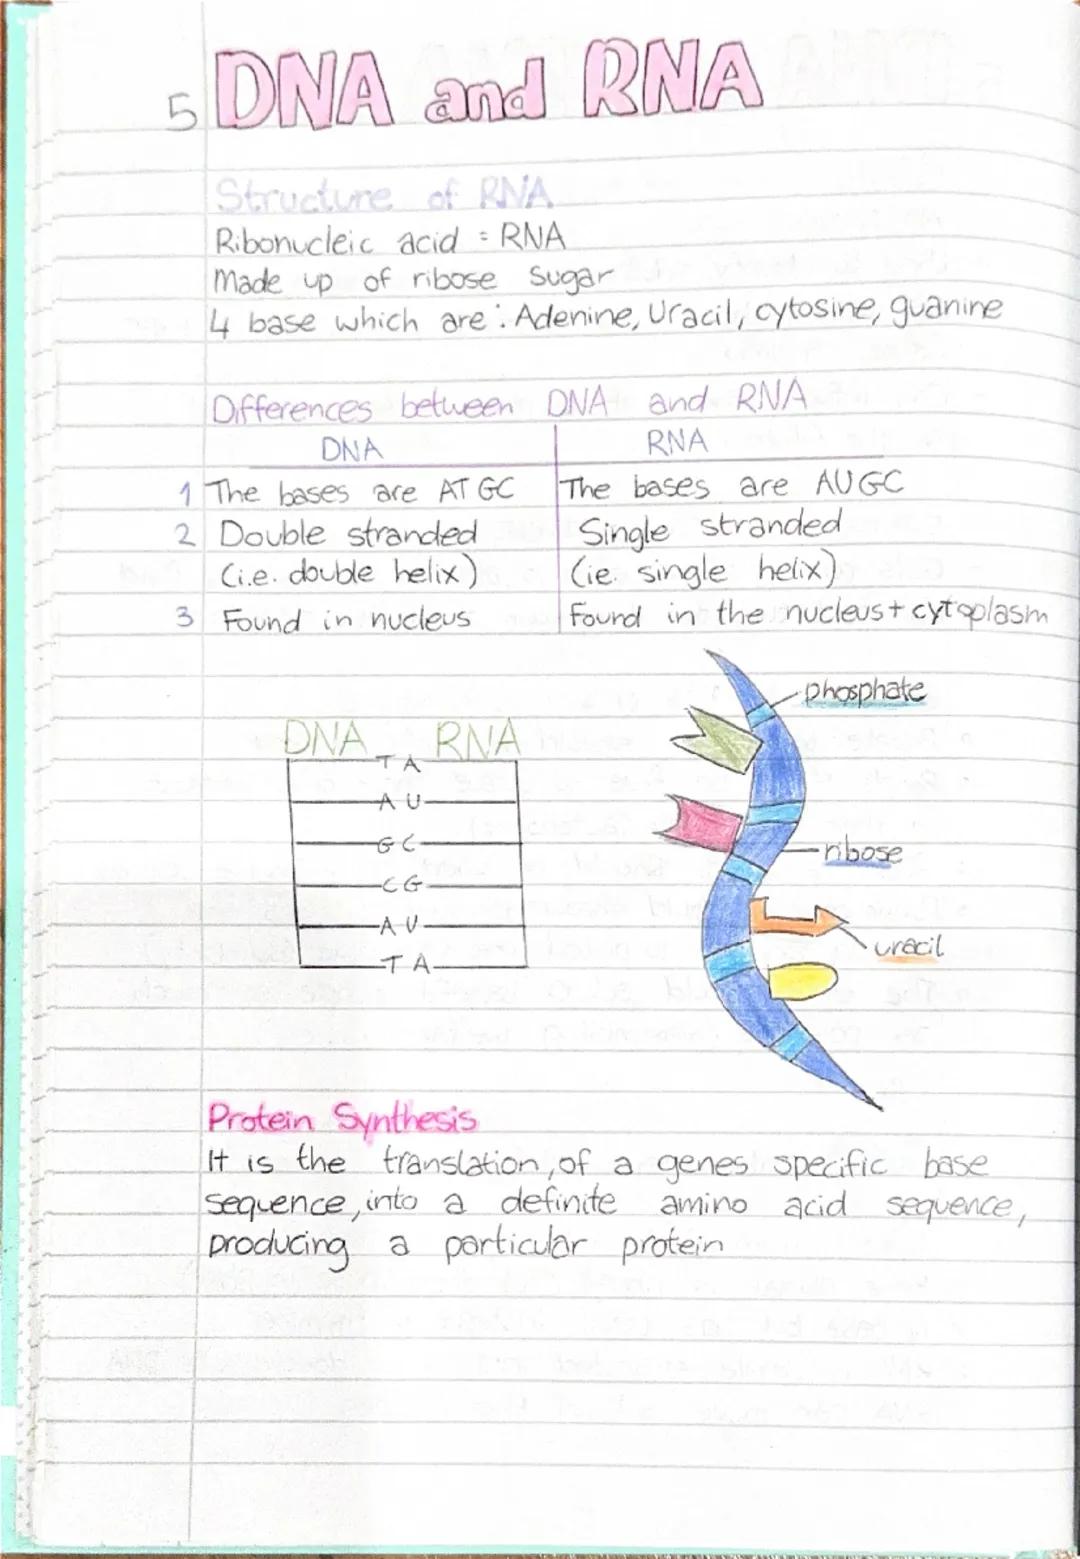 5 DNA and RNA
Structure of RNA
Ribonucleic acid = RNA
Made up of ribose sugar
4 base which are : Adenine, Uracil, cytosine, guanine
Differences between DNA and RNA
DNA RNA
1 The bases are AT GC The bases are AUGC
2 Double stranded Single stranded
(i.e. double helix) (ie. single helix)
3 Found in nucleus Found in the nucleus + cytoplasm
phosphate
DNA RNA
T A
A U
G C
C G
A U
T A
ribose
uracil
Protein Synthesis
It is the translation, of a genes specific base
sequence, into a definite amino acid sequence,
producing a particular protein